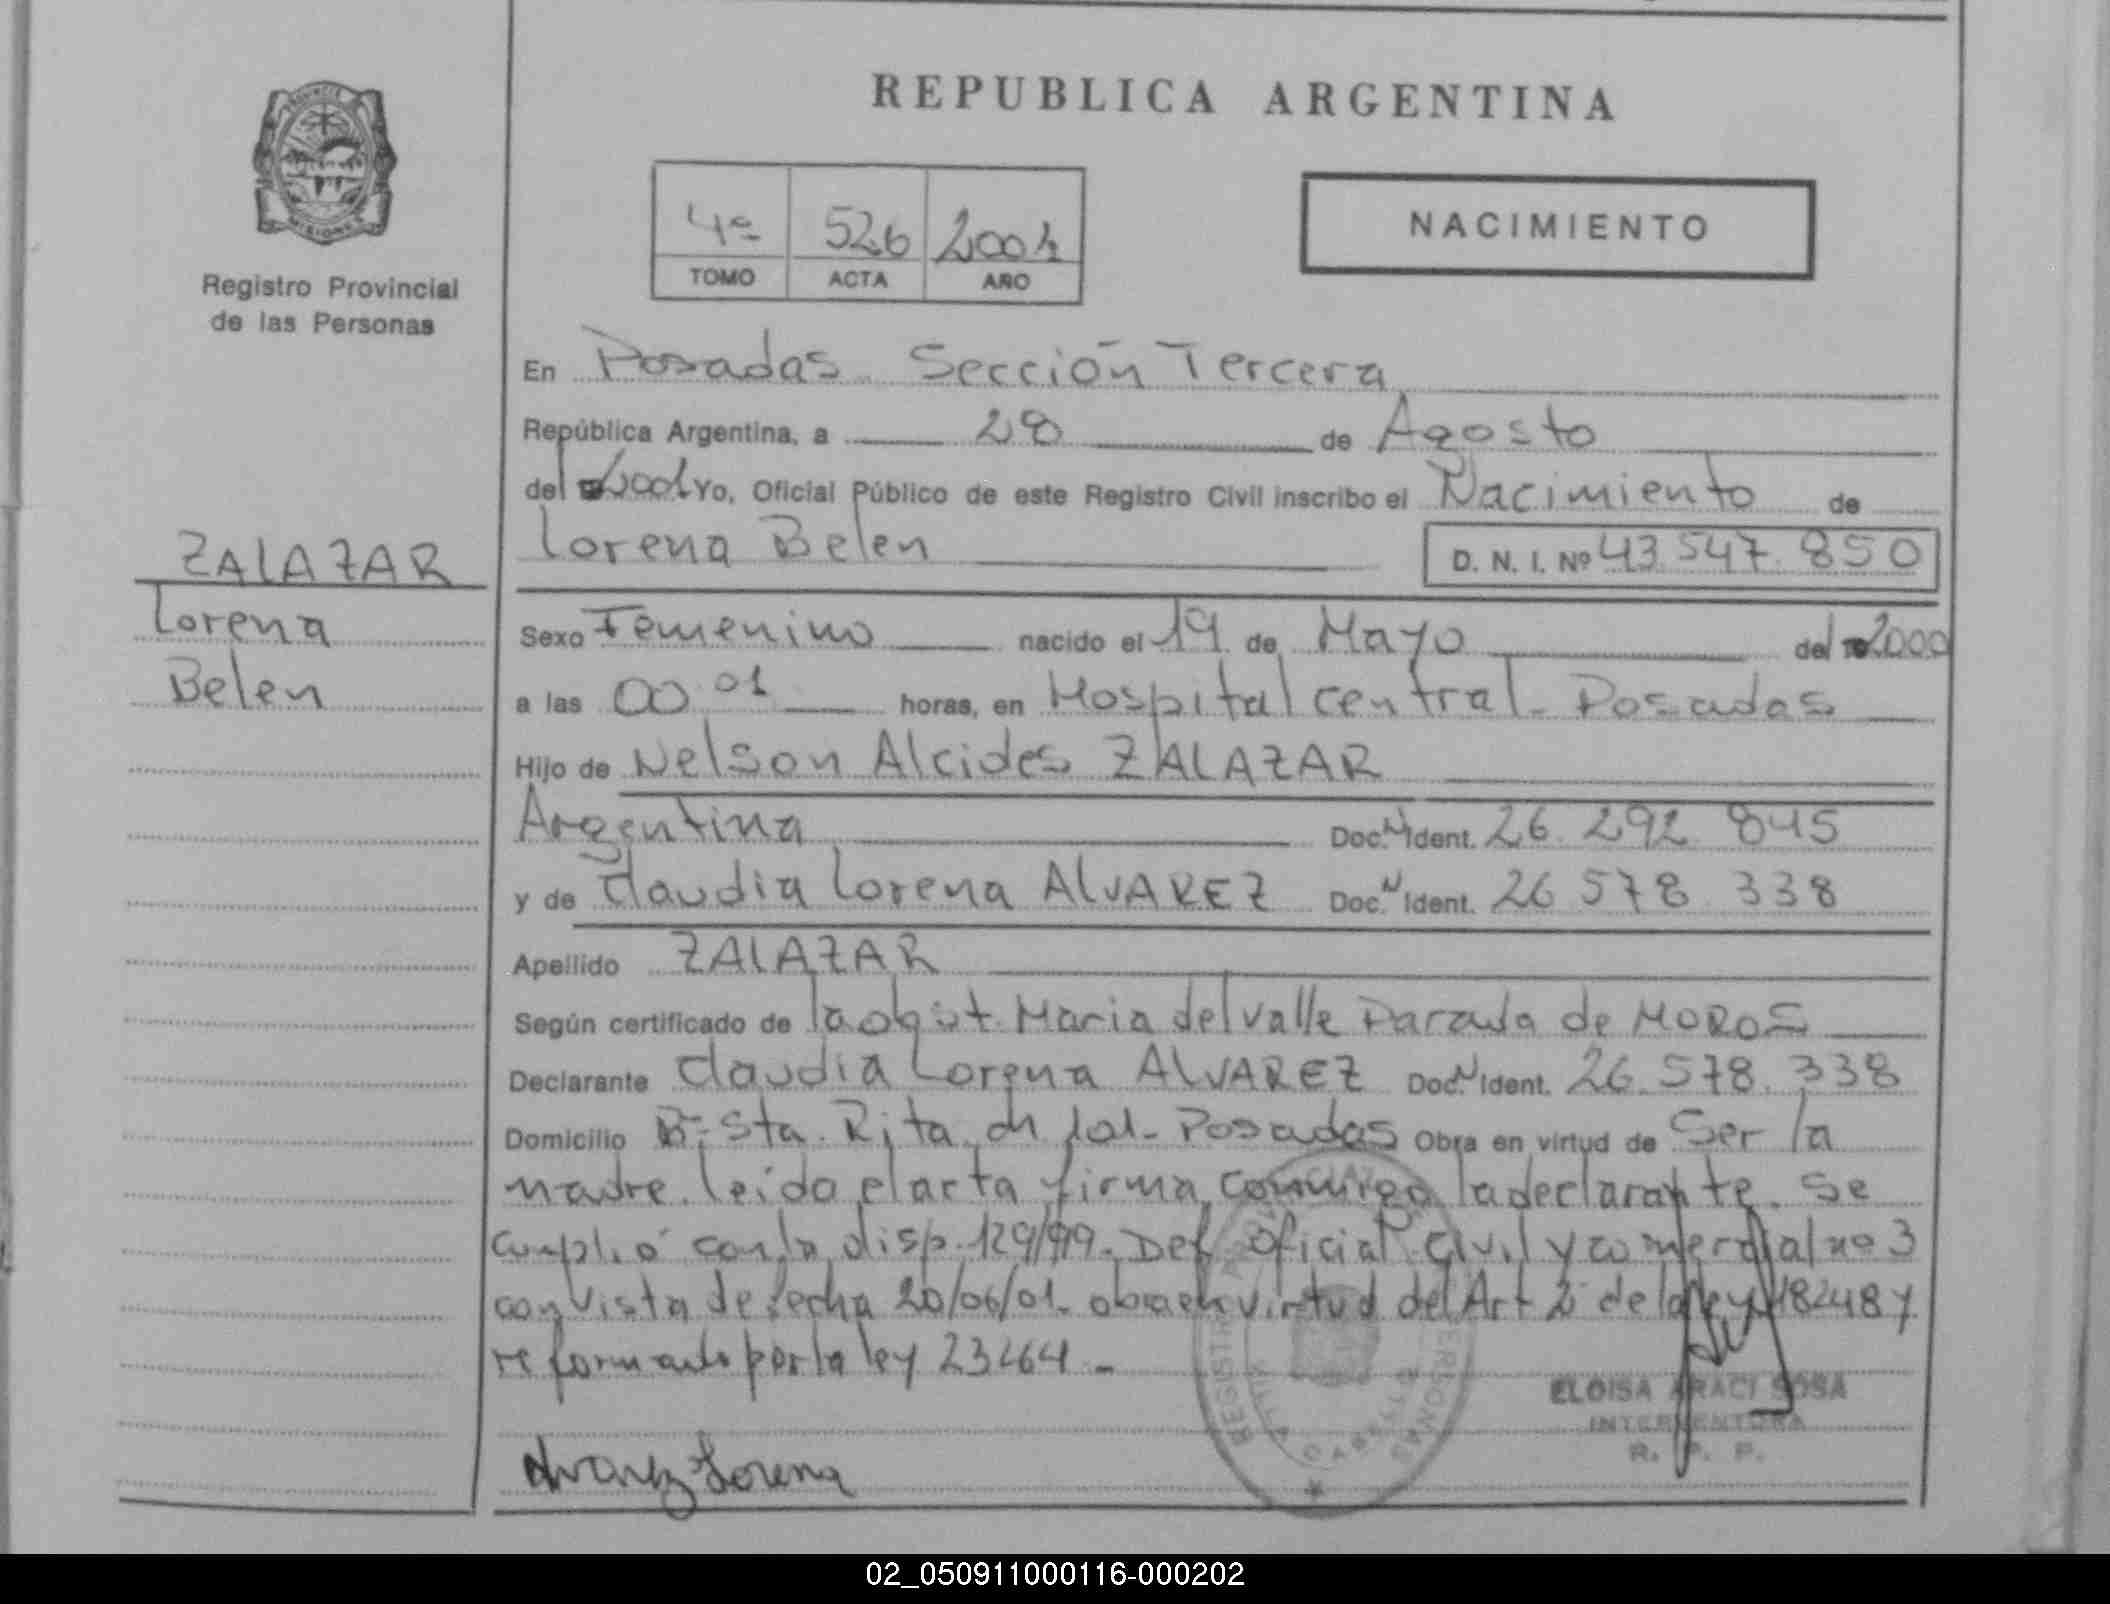 REPUBLICA ARGENTINA
PROVINCIA
MISIONES
Registro Provincial
de las Personas
4º 526 2001
TOMO ACTA AÑO
NACIMIENTO
En Posadas Sección Tercera
República Argentina, a 28 de Agosto
del 2001 Yo, Oficial Público de este Registro Civil inscribo el Nacimiento de
Lorena Belen D. N. I. Nº 43.547.850
ZALAZAR
Lorena
Belen
Sexo Femenino nacido el 19 de Mayo del 2000
a las 00.01 horas, en Hospital central - Posadas
Hijo de Nelson Alcides ZALAZAR
Argentina Doc. N Ident. 26.292.845
y de Claudia Lorena ALVAREZ Doc. N Ident. 26 578 338
Apellido ZALAZAR
Según certificado de la obst. Maria del valle Parada de MOROS
Declarante Claudia Lorena ALVAREZ Doc. N Ident. 26.578.338
Domicilio Bº Sta. Rita ch 101 - Posadas Obra en virtud de Ser la
madre. leida el acta firma conmigo la declarante. Se
cumplió con la disp. 129/99. Def. Oficial Civil y comercial nº 3
con vista de fecha 20/06/01. obra en virtud del Art 2 de la ley 18248 y
reformado por la ley 23264 -
ELOISA ARACI SOSA
INTERVENTORA
R. P. P.
Alvarez Lorena
02_050911000116-000202